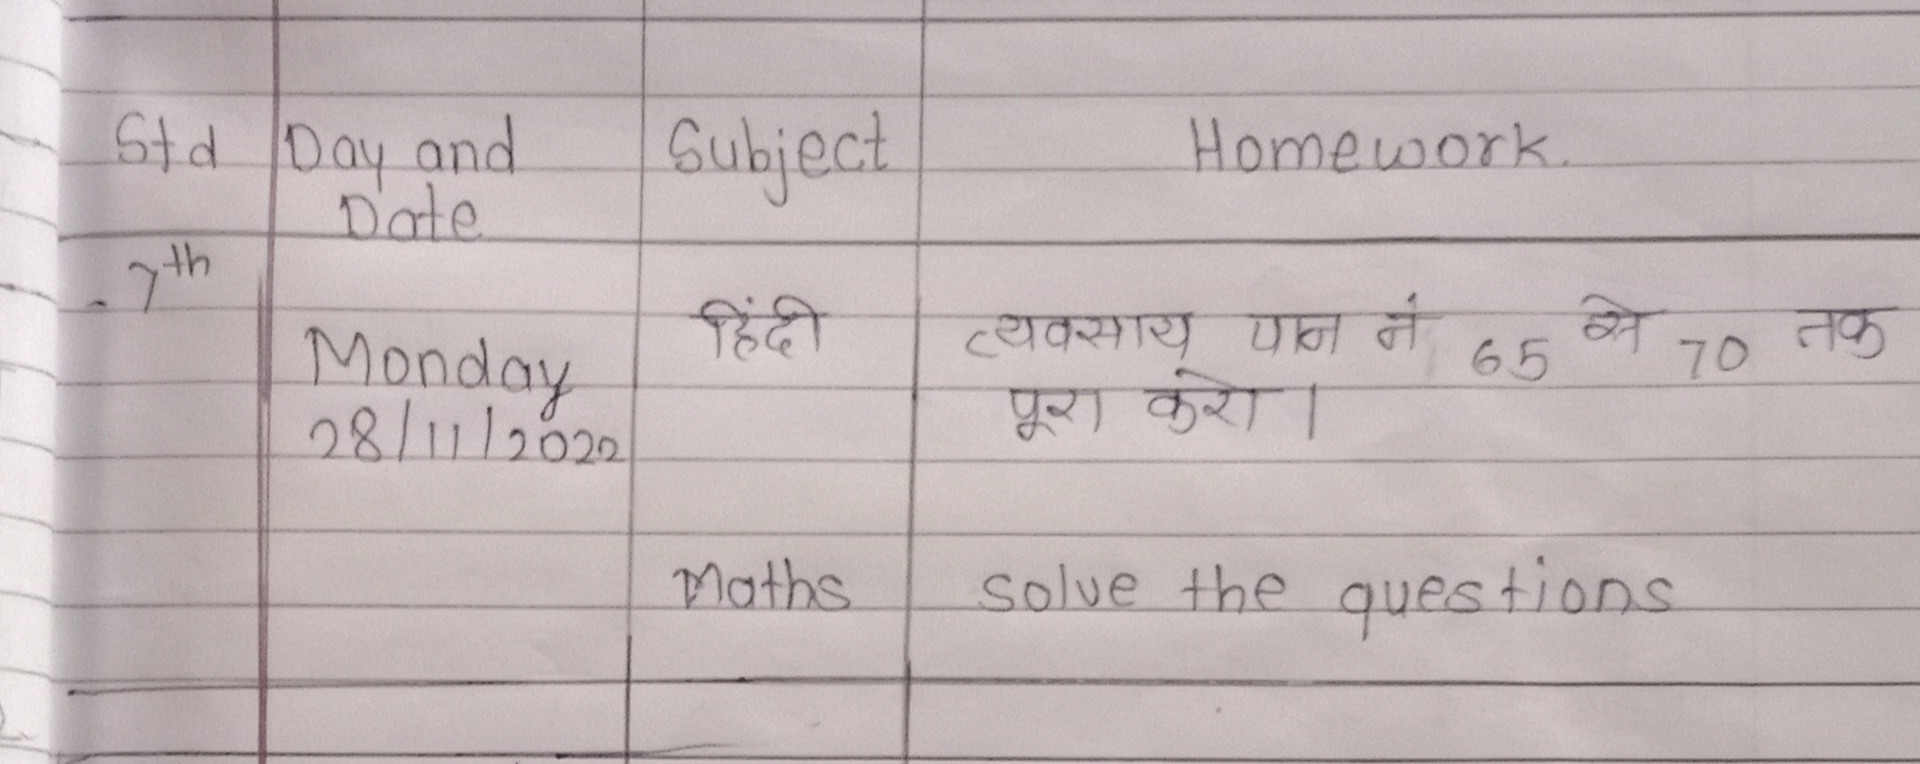 Std Day and Subject Homework.
Date
7th
हिंदी व्यवसाय पान नं 65 से 70 तक
Monday
पूरा करो।
28/11/2022
Maths solve the questions